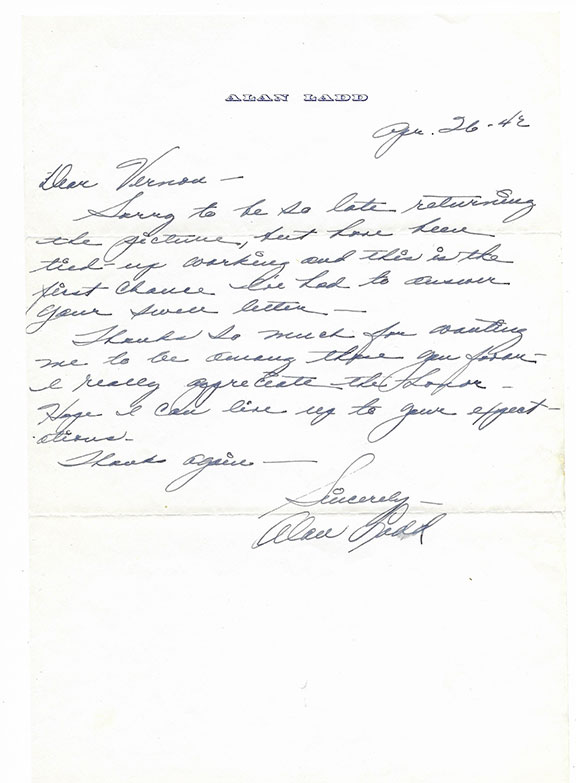 ALAN LADD
Apr. 26-42
Dear Vernon —
Sorry to be so late returning
the picture, but have been
tied-up working and this is the
first chance I've had to answer
your swell letter —
Thanks so much for wanting
me to be among those you favor -
I really appreciate the honor -
Hope I can live up to your expect-
ations -
Thanks again —
Sincerely -
Alan Ladd